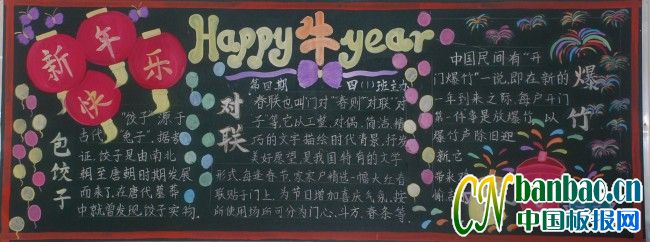 新年
快乐
Happy牛year
第四期 四(1)班主办
包饺子
"饺子"源于
古代"
证,饺子是由南北
朝至唐朝时期发展
而来了,在唐代墓葬
中就曾发现饺子实物。
对联
春联也叫门对"春贴"对联"对
子"等,它以工整、对偶、简洁、精
巧的文字描绘时代背景,抒发
美好愿望,是我国特有的文学
形式,每逢春节,家家户户精选一幅大红春
联贴于门上,为节日增加喜庆气氛,按
所使用场所可分为门心、斗方、春条等。
爆竹
中国民间有"开
门爆竹"一说,即在新的
一年到来之际,每户开门
第一件事是放爆竹,以
爆竹声除旧迎
新,它
CNbanbao.cn
中国板报网